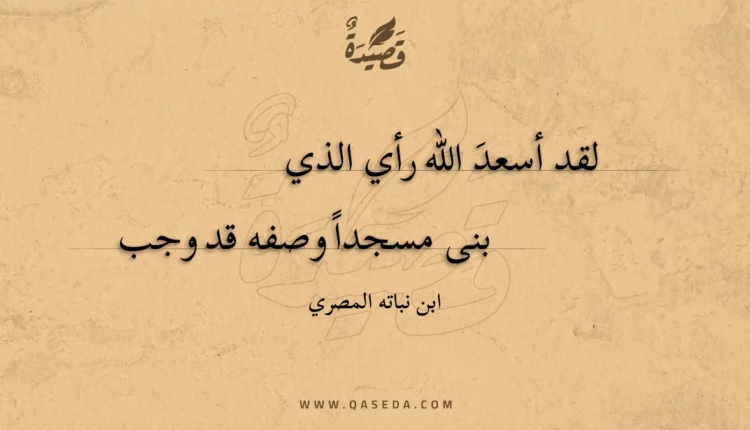 قَصِيْدَةٌ
لقد أسعدَ الله رأي الذي
بنى مسجداً وصفه قد وجب
ابن نباته المصري
WWW.QASEDA.COM